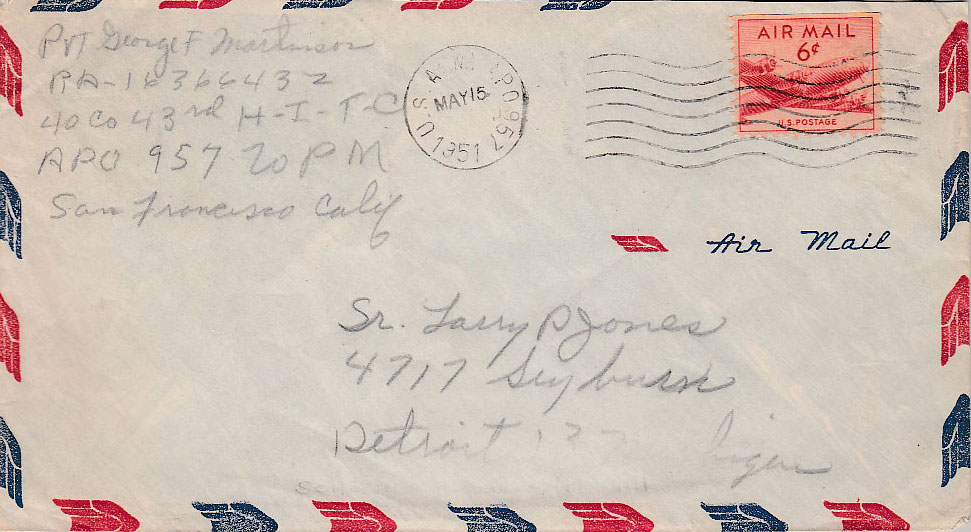 Pvt George F Martinson
RA-16366432
40 Co 43rd H-I-T-C
APO 957 % P M
San Francisco Calif
U.S. A PO 957
MAY 15
1951
AIR MAIL
6¢
U.S. POSTAGE
Air Mail
Sr. Larry P Jones
4717 Seyburn
Detroit